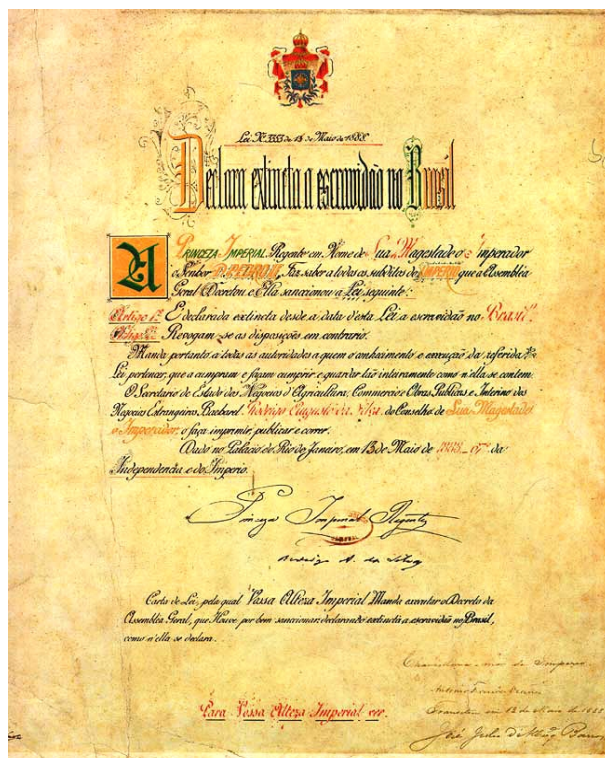 Lei Nº 3353 de 13 de Maio de 1888
Declara extincta a escravidão no Brasil
A PRINCEZA IMPERIAL Regente em Nome de Sua Magestade o Imperador
o Senhor D. PEDRO II, Faz saber a todos os subditos do IMPERIO que a Assembléa
Geral Decretou e Ella sanccionou a Lei seguinte:
Artigo 1º: É declarada extincta desde a data d'esta Lei a escravidão no Brasil.
Artigo 2º: Revogam-se as disposições em contrario.
Manda portanto a todas as autoridades a quem o conhecimento e execução da referida
Lei pertencer, que a cumpram e façam cumprir e guardar tão inteiramente como n'ella se contem.
O Secretario de Estado dos Negocios d'Agricultura, Commercio e Obras Publicas e Interino dos
Negocios Estrangeiros, Bacharel Rodrigo Augusto da Silva, do Conselho de Sua Magestade
o Imperador, o faça imprimir, publicar e correr.
Dado no Palacio do Rio de Janeiro, em 13 de Maio de 1888, 67º da
Independencia e do Imperio.
Princeza Imperial Regente
Rodrigo A. da Silva
Carta de Lei, pela qual Vossa Alteza Imperial Manda executar o Decreto da
Assembléa Geral, que Houve por bem sanccionar, declarando extincta a escravidão no Brasil,
como n'ella se declara.
Para Vossa Alteza Imperial ver.
Chancellaria-mor do Imperio
em 13 de Maio de 1888
José Julio de